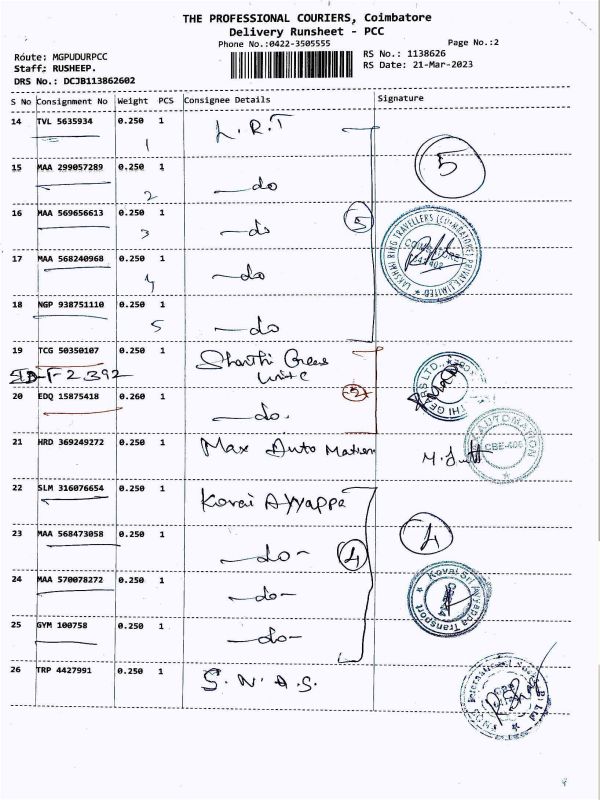 THE PROFESSIONAL COURIERS, Coimbatore
Delivery Runsheet - PCC
Phone No.:0422-3505555 Page No.:2
Route: MGPUDURPCC RS No.: 1138626
Staff: RUSHEEP. RS Date: 21-Mar-2023
DRS No.: DCJB113862602
S No Consignment No Weight PCS Consignee Details Signature
14 TVL 5635934 0.250 1 L.R.T
1
5
15 MAA 299057289 0.250 1 do
2
16 MAA 569656613 0.250 1 do 5
3
LAKSHMI RING TRAVELLERS (COIMBATORE) PRIVATE LIMITED
17 MAA 568240968 0.250 1 do
4
18 NGP 938751110 0.250 1 do
5
19 TCG 50350107 0.250 1 Shanthi Gears
Unit
2
20 EDQ 15875418 0.260 1 do.
21 HRD 369249272 0.250 1 Max Auto Mation
AUTOMATION
CBE-406
22 SLM 316076654 0.250 1 Kovai Ayyappa
23 MAA 568473058 0.250 1 do 4 4
24 MAA 570078272 0.250 1 do
Kovai Sri Ayyappa Transport
25 GYM 100758 0.250 1 do
26 TRP 4427991 0.250 1 S.N.A.S.